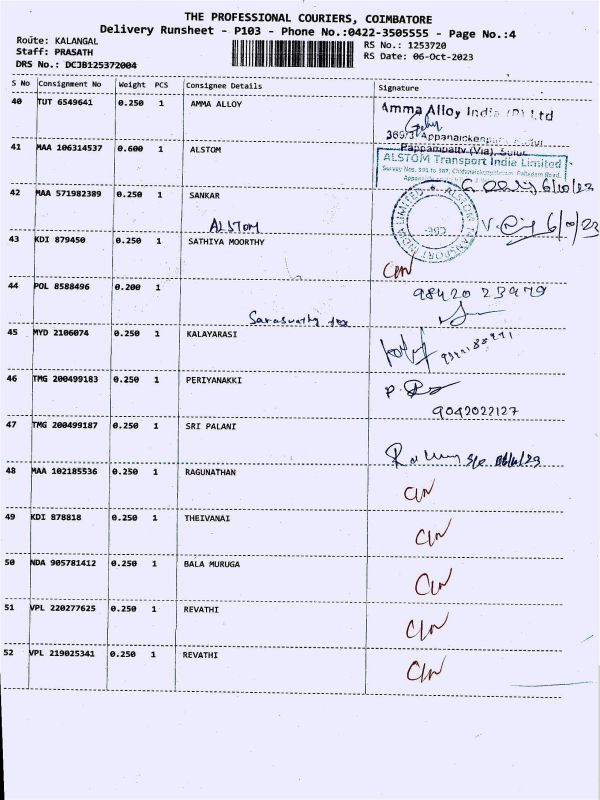 THE PROFESSIONAL COURIERS, COIMBATORE
Delivery Runsheet - P103 - Phone No.:0422-3505555 - Page No.:4
Route: KALANGAL
Staff: PRASATH
DRS No.: DCJB125372004
RS No.: 1253720
RS Date: 06-Oct-2023
S No Consignment No Weight PCS Consignee Details Signature
40 TUT 6549641 0.250 1 AMMA ALLOY
Amma Alloy India (P) Ltd
369/3 Appanaicken
Pappampatty (Via), Sulur
41 MAA 106314537 0.600 1 ALSTOM
ALSTOM Transport India Limited
6/10/23
42 MAA 571982389 0.250 1 SANKAR
ALSTOM
ALSTOM TRANSPORT INDIA LIMITED
6/10/23
43 KDI 879450 0.250 1 SATHIYA MOORTHY
44 POL 8588496 0.200 1
Saraswathy tex
98420 23979
45 MYD 2106074 0.250 1 KALAYARASI
46 TMG 200499183 0.250 1 PERIYANAKKI
9042022127
47 TMG 200499187 0.250 1 SRI PALANI
48 MAA 102185536 0.250 1 RAGUNATHAN
49 KDI 878818 0.250 1 THEIVANAI
50 NDA 905781412 0.250 1 BALA MURUGA
51 VPL 220277625 0.250 1 REVATHI
52 VPL 219025341 0.250 1 REVATHI